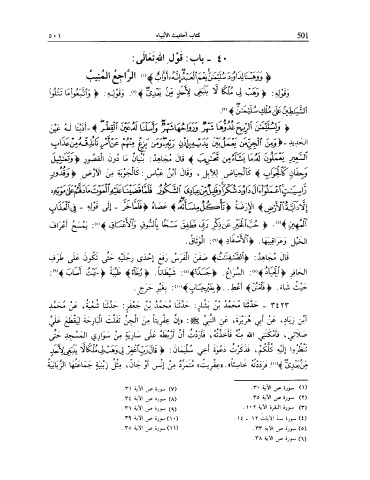 501 كتاب أحاديث الأنبياء ٥٠١
٤٠ - باب: قَوْلِ اللهِ تَعَالَى:
﴿وَوَهَبْنَا لِدَاوُدَ سُلَيْمَنَ نِعْمَ الْعَبْدُ إِنَّهُ أَوَّابٌ﴾(١) الرَّاجِعُ الْمُنِيبُ
وَقَوْلِهِ: ﴿وَهَبْ لِي مُلْكًا لَّا يَنْبَغِي لِأَحَدٍ مِّنْ بَعْدِي﴾(٢). وَقَوْلِهِ: ﴿وَاتَّبَعُوا مَا تَتْلُوا
الشَّيَاطِينُ عَلَى مُلْكِ سُلَيْمَنَ﴾(٣)
﴿وَلِسُلَيْمَنَ الرِّيحَ غُدُوُّهَا شَهْرٌ وَرَوَاحُهَا شَهْرٌ وَأَسَلْنَا لَهُ عَيْنَ الْقِطْرِ﴾ - أَذَبْنَا لَهُ عَيْنَ
الحَدِيدِ - ﴿وَمِنَ الْجِنِّ مَن يَعْمَلُ بَيْنَ يَدَيْهِ بِإِذْنِ رَبِّهِ وَمَن يَزِغْ مِنْهُمْ عَنْ أَمْرِنَا نُذِقْهُ مِنْ عَذَابِ
السَّعِيرِ يَعْمَلُونَ لَهُ مَا يَشَاءُ مِن مَّحَارِيبَ﴾ قَالَ مُجَاهِدٌ: بُنْيَانٌ مَا دُونَ القُصُورِ ﴿وَتَمَاثِيلَ
وَجِفَانٍ كَالْجَوَابِ﴾ كَالْحِيَاضِ لِلْإِبِلِ، وَقَالَ ابْنُ عَبَّاسٍ: كَالْجَوْبَةِ مِنَ الأَرْضِ ﴿وَقُدُورٍ
رَّاسِيَاتٍ اعْمَلُوا آلَ دَاوُدَ شُكْرًا وَقَلِيلٌ مِّنْ عِبَادِيَ الشَّكُورُ فَلَمَّا قَضَيْنَا عَلَيْهِ الْمَوْتَ مَا دَلَّهُمْ عَلَى مَوْتِهِ
إِلَّا دَابَّةُ الْأَرْضِ﴾ الأَرَضَةُ ﴿تَأْكُلُ مِنسَأَتَهُ﴾ عَصَاهُ ﴿فَلَمَّا خَرَّ﴾ - إِلَى قَوْلِهِ - ﴿فِي الْعَذَابِ
الْمُهِينِ﴾(٤). ﴿حُبَّ الْخَيْرِ عَن ذِكْرِ رَبِّي فَطَفِقَ مَسْحًا بِالسُّوقِ وَالْأَعْنَاقِ﴾(٥). يَمْسَحُ أَعْرَافَ
الخَيْلِ وَعَرَاقِيبَهَا. ﴿الْأَصْفَادِ﴾(٦) الوَثَاقُ.
قَالَ مُجَاهِدٌ: ﴿الصَّافِنَاتُ﴾ صَفَنَ الْفَرَسُ رَفَعَ إِحْدَى رِجْلَيْهِ حَتَّى تَكُونَ عَلَى طَرَفِ
الحَافِرِ ﴿الْجِيَادُ﴾(٧): السِّرَاعُ. ﴿جَسَدًا﴾(٨): شَيْطَانًا. ﴿رُخَاءً﴾ طَيِّبَةً ﴿حَيْثُ أَصَابَ﴾(٩):
حَيْثُ شَاءَ. ﴿فَامْنُنْ﴾ أَعْطِ. ﴿بِغَيْرِ حِسَابٍ﴾(١٠): بِغَيْرِ حَرَجٍ.
٣٤٢٣ - حَدَّثَنَا مُحَمَّدُ بْنُ بَشَّارٍ: حَدَّثَنَا مُحَمَّدُ بْنُ جَعْفَرٍ: حَدَّثَنَا شُعْبَةُ، عَنْ مُحَمَّدِ
ابْنِ زِيَادٍ، عَنْ أَبِي هُرَيْرَةَ، عَنِ النَّبِيِّ ﷺ: «إِنَّ عِفْرِيتًا مِنَ الْجِنِّ تَفَلَّتَ الْبَارِحَةَ لِيَقْطَعَ عَلَيَّ
صَلَاتِي، فَأَمْكَنَنِي اللهُ مِنْهُ فَأَخَذْتُهُ، فَأَرَدْتُ أَنْ أَرْبِطَهُ عَلَى سَارِيَةٍ مِنْ سَوَارِي الْمَسْجِدِ حَتَّى
تَنْظُرُوا إِلَيْهِ كُلُّكُمْ، فَذَكَرْتُ دَعْوَةَ أَخِي سُلَيْمَانَ: ﴿قَالَ رَبِّ اغْفِرْ لِي وَهَبْ لِي مُلْكًا لَّا يَنْبَغِي لِأَحَدٍ
مِّنْ بَعْدِي﴾(١١) فَرَدَدْتُهُ خَاسِئًا». عِفْرِيتٌ: مُتَمَرِّدٌ مِنْ إِنْسٍ أَوْ جَانٍّ، مِثْلُ زِبْنِيَةٍ جَمَاعَتُهَا الزَّبَانِيَةُ
(١) سورة ص الآية ٣٠.
(٢) سورة ص الآية ٣٥.
(٣) سورة البقرة الآية ١٠٢.
(٤) سورة سبأ الآيات ١٢ - ١٤.
(٥) سورة ص الآية ٣٣.
(٦) سورة ص الآية ٣٨.
(٧) سورة ص الآية ٣١.
(٨) سورة ص الآية ٣٤.
(٩) سورة ص الآية ٣٦.
(١٠) سورة ص الآية ٣٩.
(١١) سورة ص الآية ٣٥.